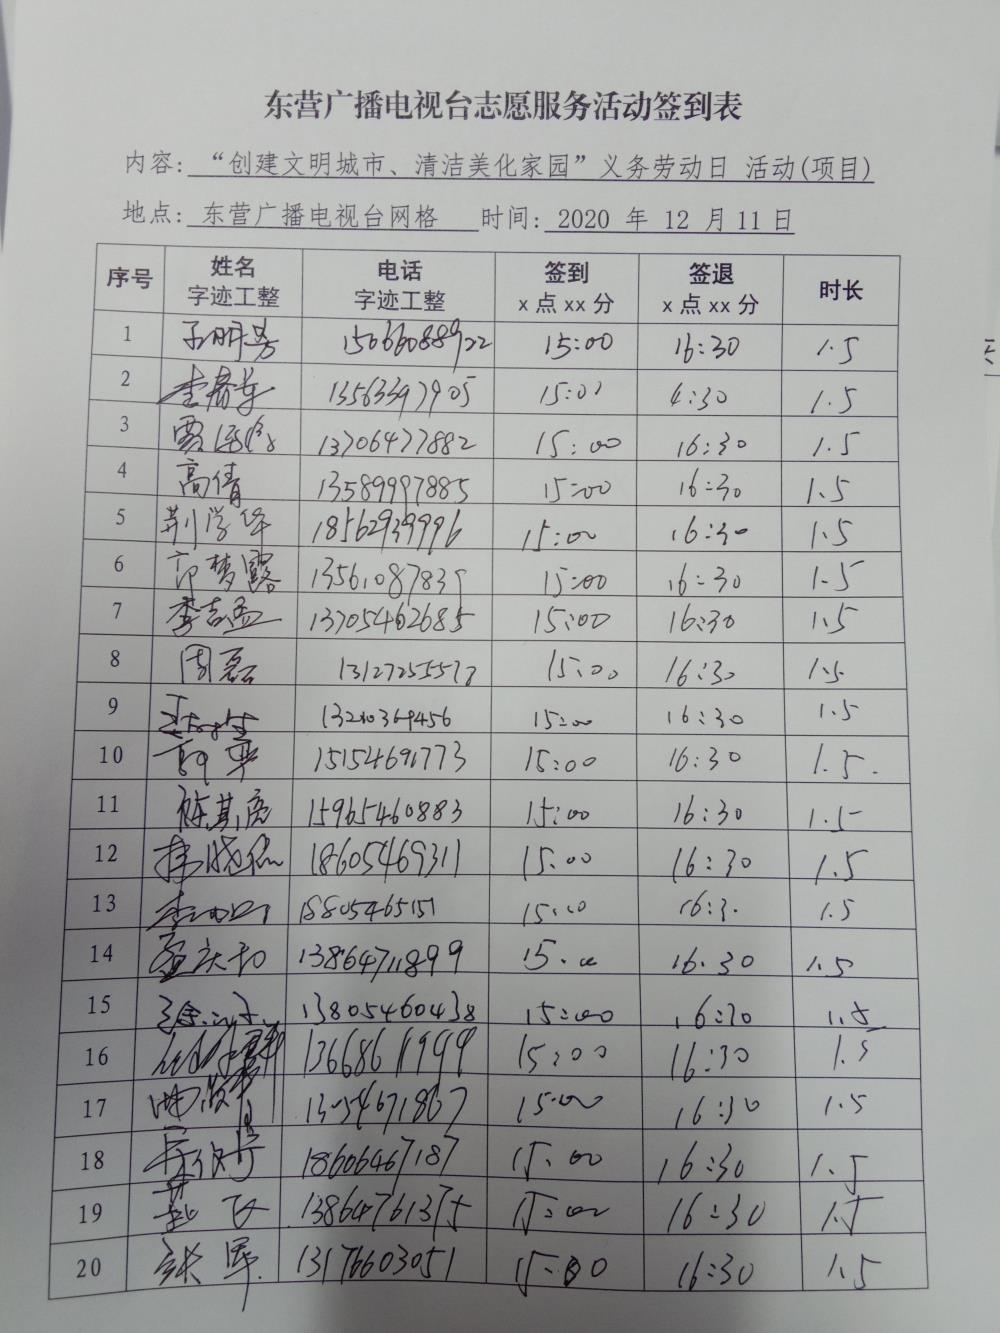 东营广播电视台志愿服务活动签到表
内容: “创建文明城市、清洁美化家园”义务劳动日 活动(项目)
地点: 东营广播电视台网格 时间: 2020 年 12 月 11 日
序号 姓名 字迹工整 电话 字迹工整 签到 x 点 xx 分 签退 x 点 xx 分 时长
1 15066088922 15:00 16:30 1.5
2 李春华 13563397905 15:00 4:30 1.5
3 贾 13706477882 15:00 16:30 1.5
4 高倩 13589997885 15:00 16:30 1.5
5 荆学华 18562939996 15:00 16:30 1.5
6 郭梦露 13561087839 15:00 16:30 1.5
7 李志孟 13705462685 15:00 16:30 1.5
8 周磊 13127255578 15:00 16:30 1.5
9 13210369456 15:00 16:30 1.5
10 15154691773 15:00 16:30 1.5.
11 陈其亮 15965460883 15:00 16:30 1.5
12 韩晓 18605469311 15:00 16:30 1.5
13 18805465151 15:00 16:3. 1.5
14 孟庆和 13864711899 15.00 16.30 1.5
15 13805460438 15:00 16:30 1.5
16 13668611999 15:00 16:30 1.5
17 曲 13054671867 15:00 16:30 1.5
18 18606467187 15:00 16:30 1.5
19 飞 13864761375 15:00 16:30 1.5
20 张军. 13176603051 15:00 16:30 1.5
天